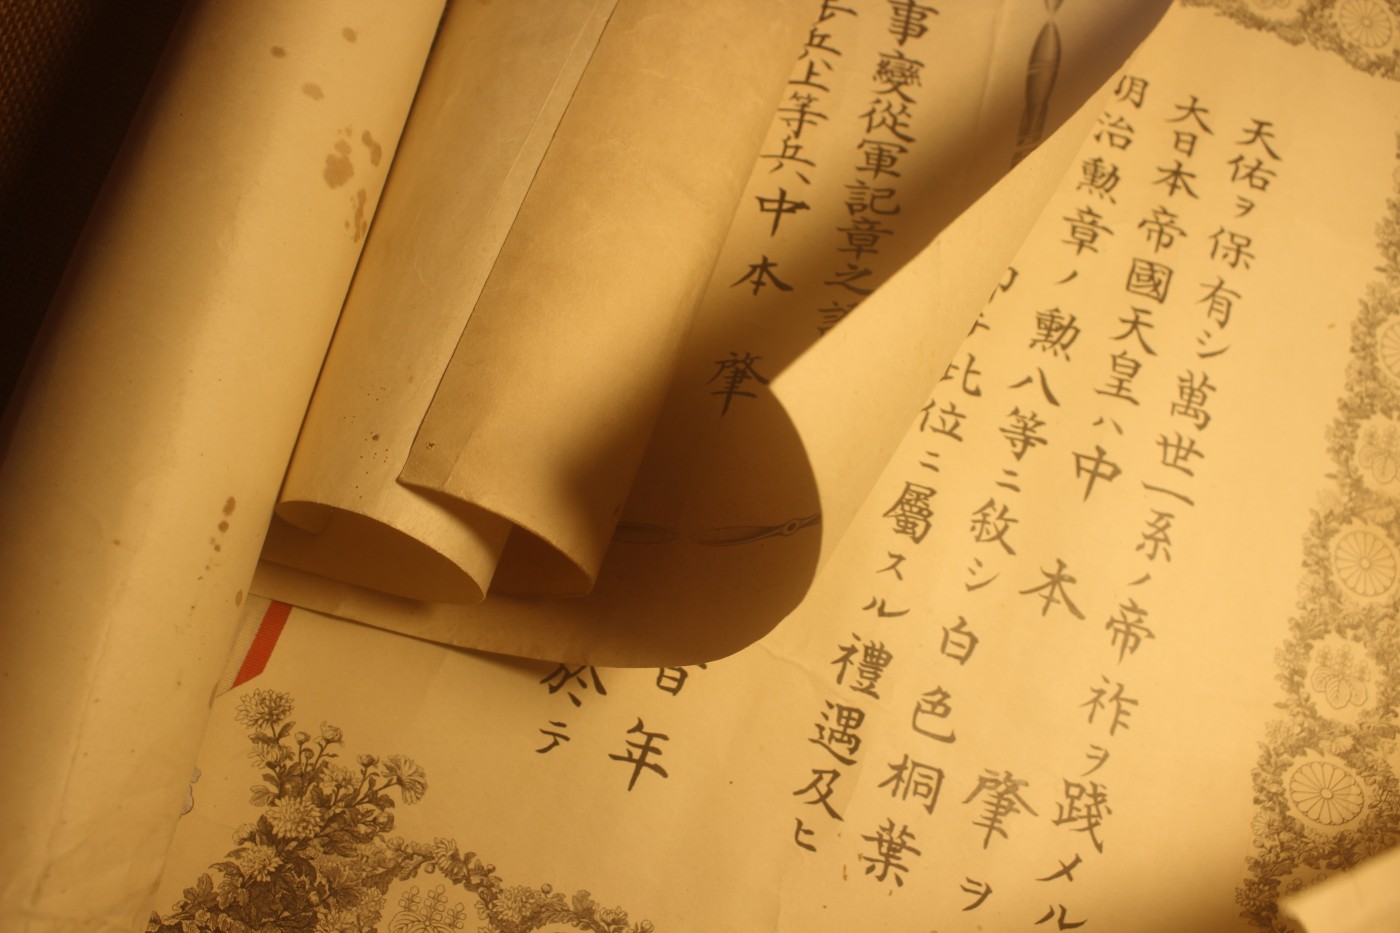 天佑ヲ保有シ萬世一系ノ帝祚ヲ踐メル
大日本帝國天皇ハ中本肇ヲ
明治勲章ノ勲八等ニ敘シ白色桐葉
此位ニ屬スル禮遇及ヒ
事變從軍記章之
兵上等兵中本肇
年
於テ